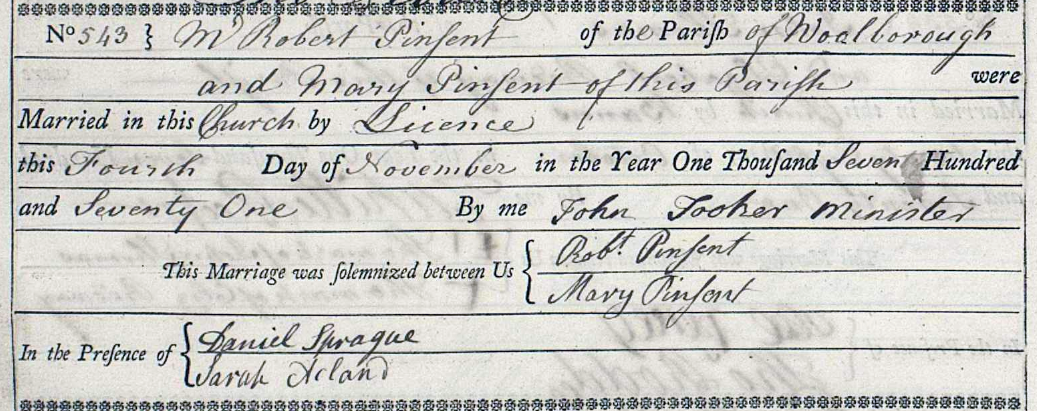 No 543 } Mr Robert Pinsent of the Pariſh of Woolborough
and Mary Pinsent of this Parish were
Married in this Church by Licence
this Fourth Day of November in the Year One Thouſand Seven Hundred
and Seventy One By me John Tooker Minister
This Marriage was ſolemnized between Us { Robt. Pinsent
Mary Pinsent
In the Preſence of { Daniel Sprague
Sarah Acland